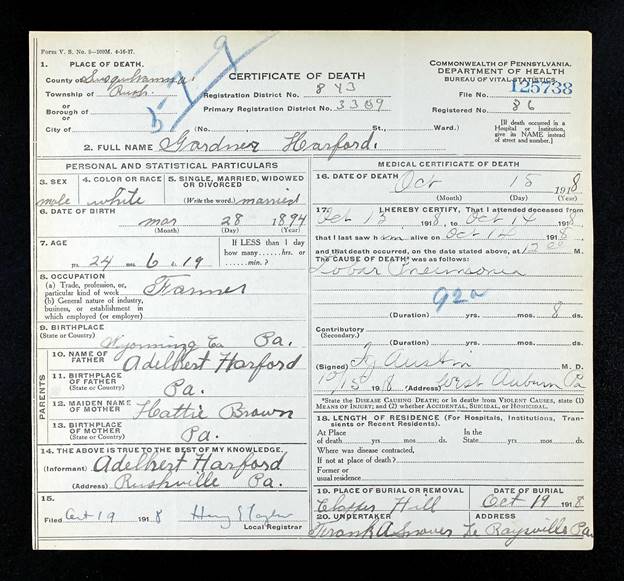 Form V. S. No. 5—100M. 4-16-17.
1. PLACE OF DEATH.
County of Susquehanna.
Township of Rush.
or
Borough of
or
City of
5-7-9
CERTIFICATE OF DEATH
Registration District No. 843
Primary Registration District No. 3369
(No. St., Ward.)
COMMONWEALTH OF PENNSYLVANIA.
DEPARTMENT OF HEALTH
BUREAU OF VITAL STATISTICS.
File No. 125738
Registered No. 86
[If death occurred in a Hospital or Institution, give its NAME instead of street and number.]
2. FULL NAME Gardner Harford.
PERSONAL AND STATISTICAL PARTICULARS
3. SEX male
4. COLOR OR RACE white
5. SINGLE, MARRIED, WIDOWED OR DIVORCED (Write the word.) married
6. DATE OF BIRTH mar 28 1894
(Month) (Day) (Year)
7. AGE
yrs. 24 mos. 6 d. 19
If LESS than 1 day how many......hrs. or ......min.?
8. OCCUPATION
(a) Trade, profession, or particular kind of work Farmer
(b) General nature of industry, business, or establishment in which employed (or employer)
9. BIRTHPLACE
(State or Country) Wyoming Co Pa.
PARENTS
10. NAME OF FATHER Adelbert Harford
11. BIRTHPLACE OF FATHER
(State or Country) Pa.
12. MAIDEN NAME OF MOTHER Hattie Brown
13. BIRTHPLACE OF MOTHER
(State or Country) Pa.
14. THE ABOVE IS TRUE TO THE BEST OF MY KNOWLEDGE.
(Informant) Adelbert Harford
(Address) Rushville Pa.
15.
Filed Oct 19 1918 Henry S Taylor
Local Registrar
MEDICAL CERTIFICATE OF DEATH
16. DATE OF DEATH
Oct 15 1918
(Month) (Day) (Year)
17. I HEREBY CERTIFY, That I attended deceased from
Oct 13 1918, to Oct 14 1918
that I last saw him alive on Oct 14 1918
and that death occurred, on the date stated above, at 12
The CAUSE OF DEATH* was as follows:
Lobar Pneumonia
92a
(Duration) yrs. mos. 8 ds.
Contributory
(Secondary.)
(Duration) yrs. mos. ds.
(Signed) Austin M. D.
10/15 1918 (Address) West Auburn Pa
*State the DISEASE CAUSING DEATH; or in deaths from VIOLENT CAUSES, state (1) MEANS OF INJURY; and (2) whether ACCIDENTAL, SUICIDAL, or HOMICIDAL.
18. LENGTH OF RESIDENCE (For Hospitals, Institutions, Transients or Recent Residents).
At Place of death yrs. mos. ds. In the State yrs. mos. ds.
Where was disease contracted, if not at place of death?
Former or usual residence
19. PLACE OF BURIAL OR REMOVAL Hill
DATE OF BURIAL Oct 19 1918
20. UNDERTAKER Frank A Snover
ADDRESS Le Raysville Pa